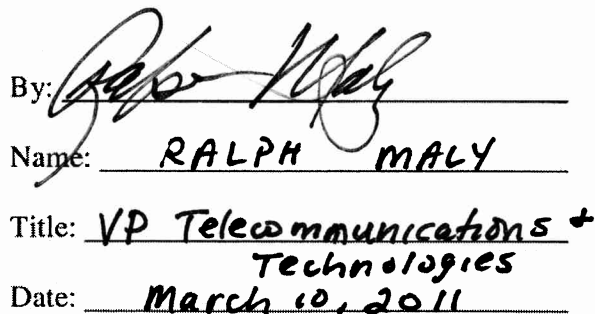 By: Ralph Maly
Name: RALPH MALY
Title: VP Telecommunications &
Technologies
Date: March 10, 2011